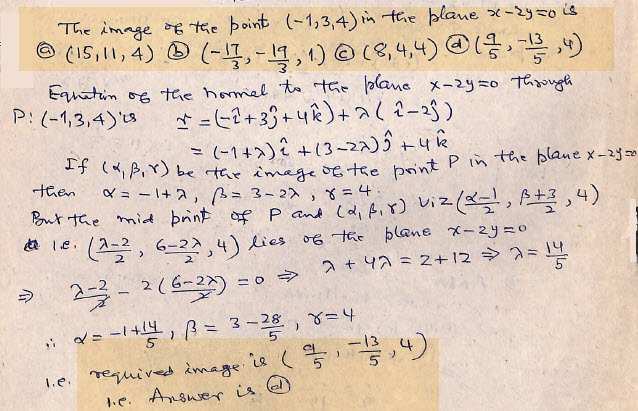 The image of the point (-1,3,4) in the plane x-2y=0 is
ⓐ (15,11,4) ⓑ (-17/3, -19/3, 1) ⓒ (8,4,4) ⓓ (9/5, -13/5, 4)
Equation of the normal to the plane x-2y=0 through
P: (-1,3,4) is r = (-î+3ĵ+4k̂)+λ(î-2ĵ)
= (-1+λ)î+(3-2λ)ĵ+4k̂
If (α,β,γ) be the image of the point P in the plane x-2y=0
then α = -1+λ, β = 3-2λ, γ = 4.
But the mid point of P and (α,β,γ) viz (α-1/2, β+3/2, 4)
i.e. (λ-2/2, 6-2λ/2, 4) lies of the plane x-2y=0
⇒ λ-2/2 - 2(6-2λ/2) = 0 ⇒ λ+4λ = 2+12 ⇒ λ = 14/5
∴ α = -1+14/5, β = 3-28/5, γ=4
i.e. required image is (9/5, -13/5, 4)
i.e. Answer is ⓓ